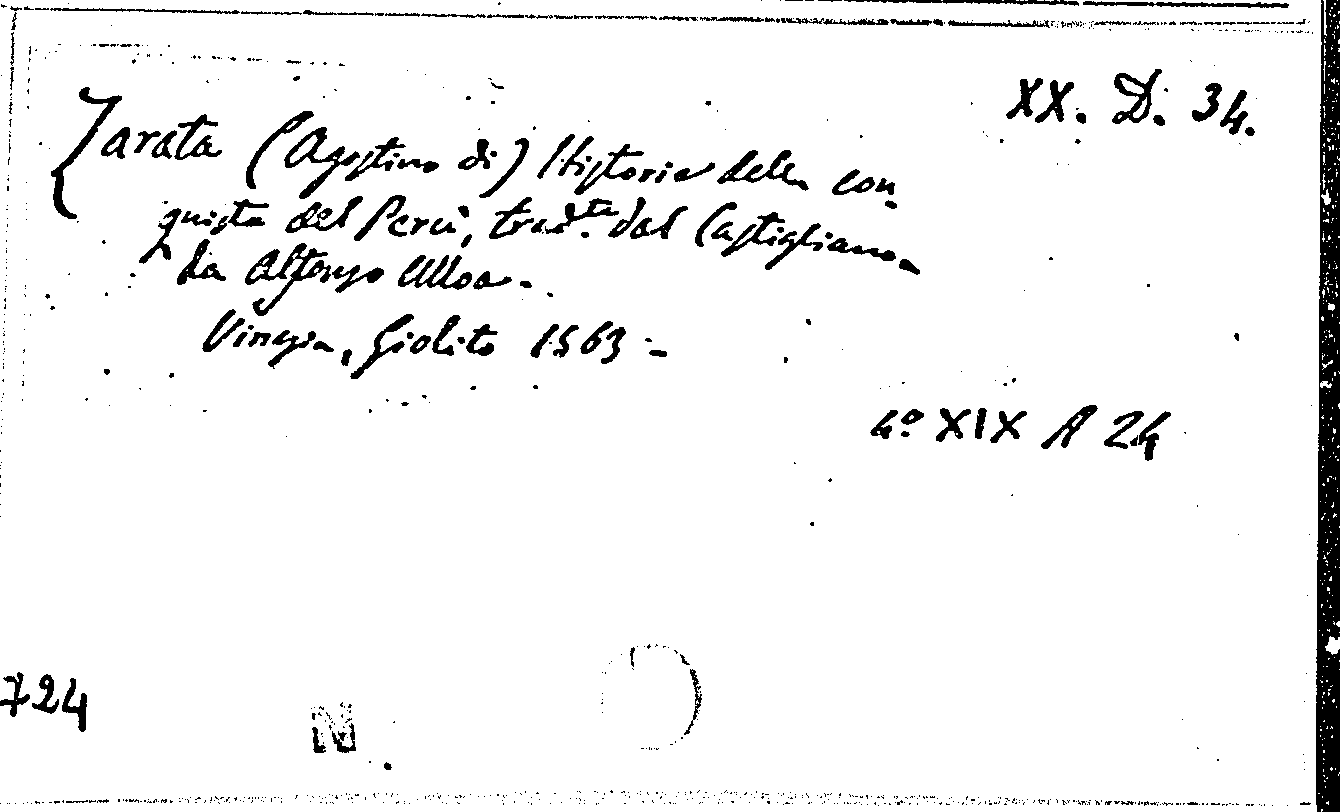 XX. D. 34.
Zarata (Agostino di) Historia della con-
quista del Perù, trad.ta dal Castigliano
da Alfonso Ulloa.
Vinegia, Giolito 1563 -
4º XIX A 24
724
N